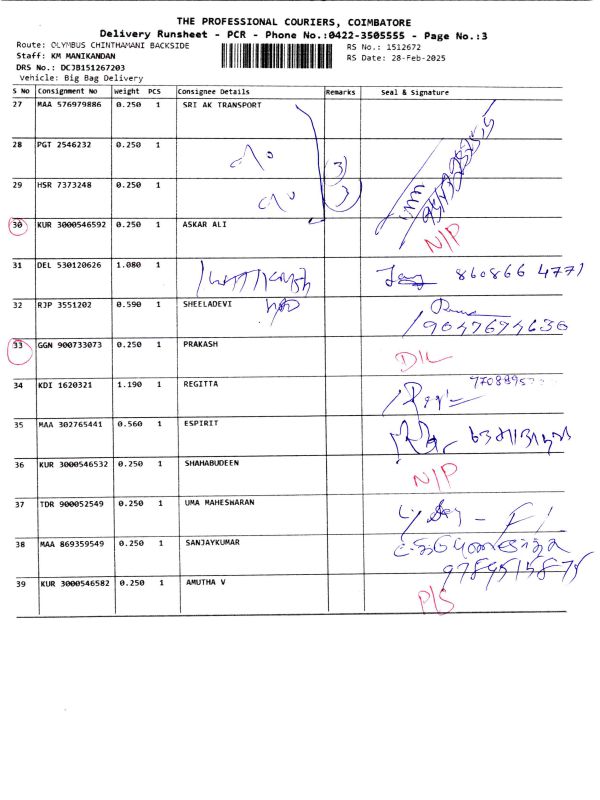 THE PROFESSIONAL COURIERS, COIMBATORE
Delivery Runsheet - PCR - Phone No.:0422-3505555 - Page No.:3
Route: OLYMBUS CHINTHAMANI BACKSIDE
RS No.: 1512672
Staff: KM MANIKANDAN
RS Date: 28-Feb-2025
DRS No.: DCJB151267203
Vehicle: Big Bag Delivery
S No Consignment No Weight PCS Consignee Details Remarks Seal & Signature
27 MAA 576979886 0.250 1 SRI AK TRANSPORT
28 PGT 2546232 0.250 1
(3)
29 HSR 7373248 0.250 1
30 KUR 3000546592 0.250 1 ASKAR ALI N/P
31 DEL 530120626 1.080 1 860866 4771
32 RJP 3551202 0.590 1 SHEELADEVI
33 GGN 900733073 0.250 1 PRAKASH D/L
34 KDI 1620321 1.190 1 REGITTA
35 MAA 302765441 0.560 1 ESPIRIT
36 KUR 3000546532 0.250 1 SHAHABUDEEN N/P
37 TDR 900052549 0.250 1 UMA MAHESWARAN
38 MAA 869359549 0.250 1 SANJAYKUMAR
39 KUR 3000546582 0.250 1 AMUTHA V P/S